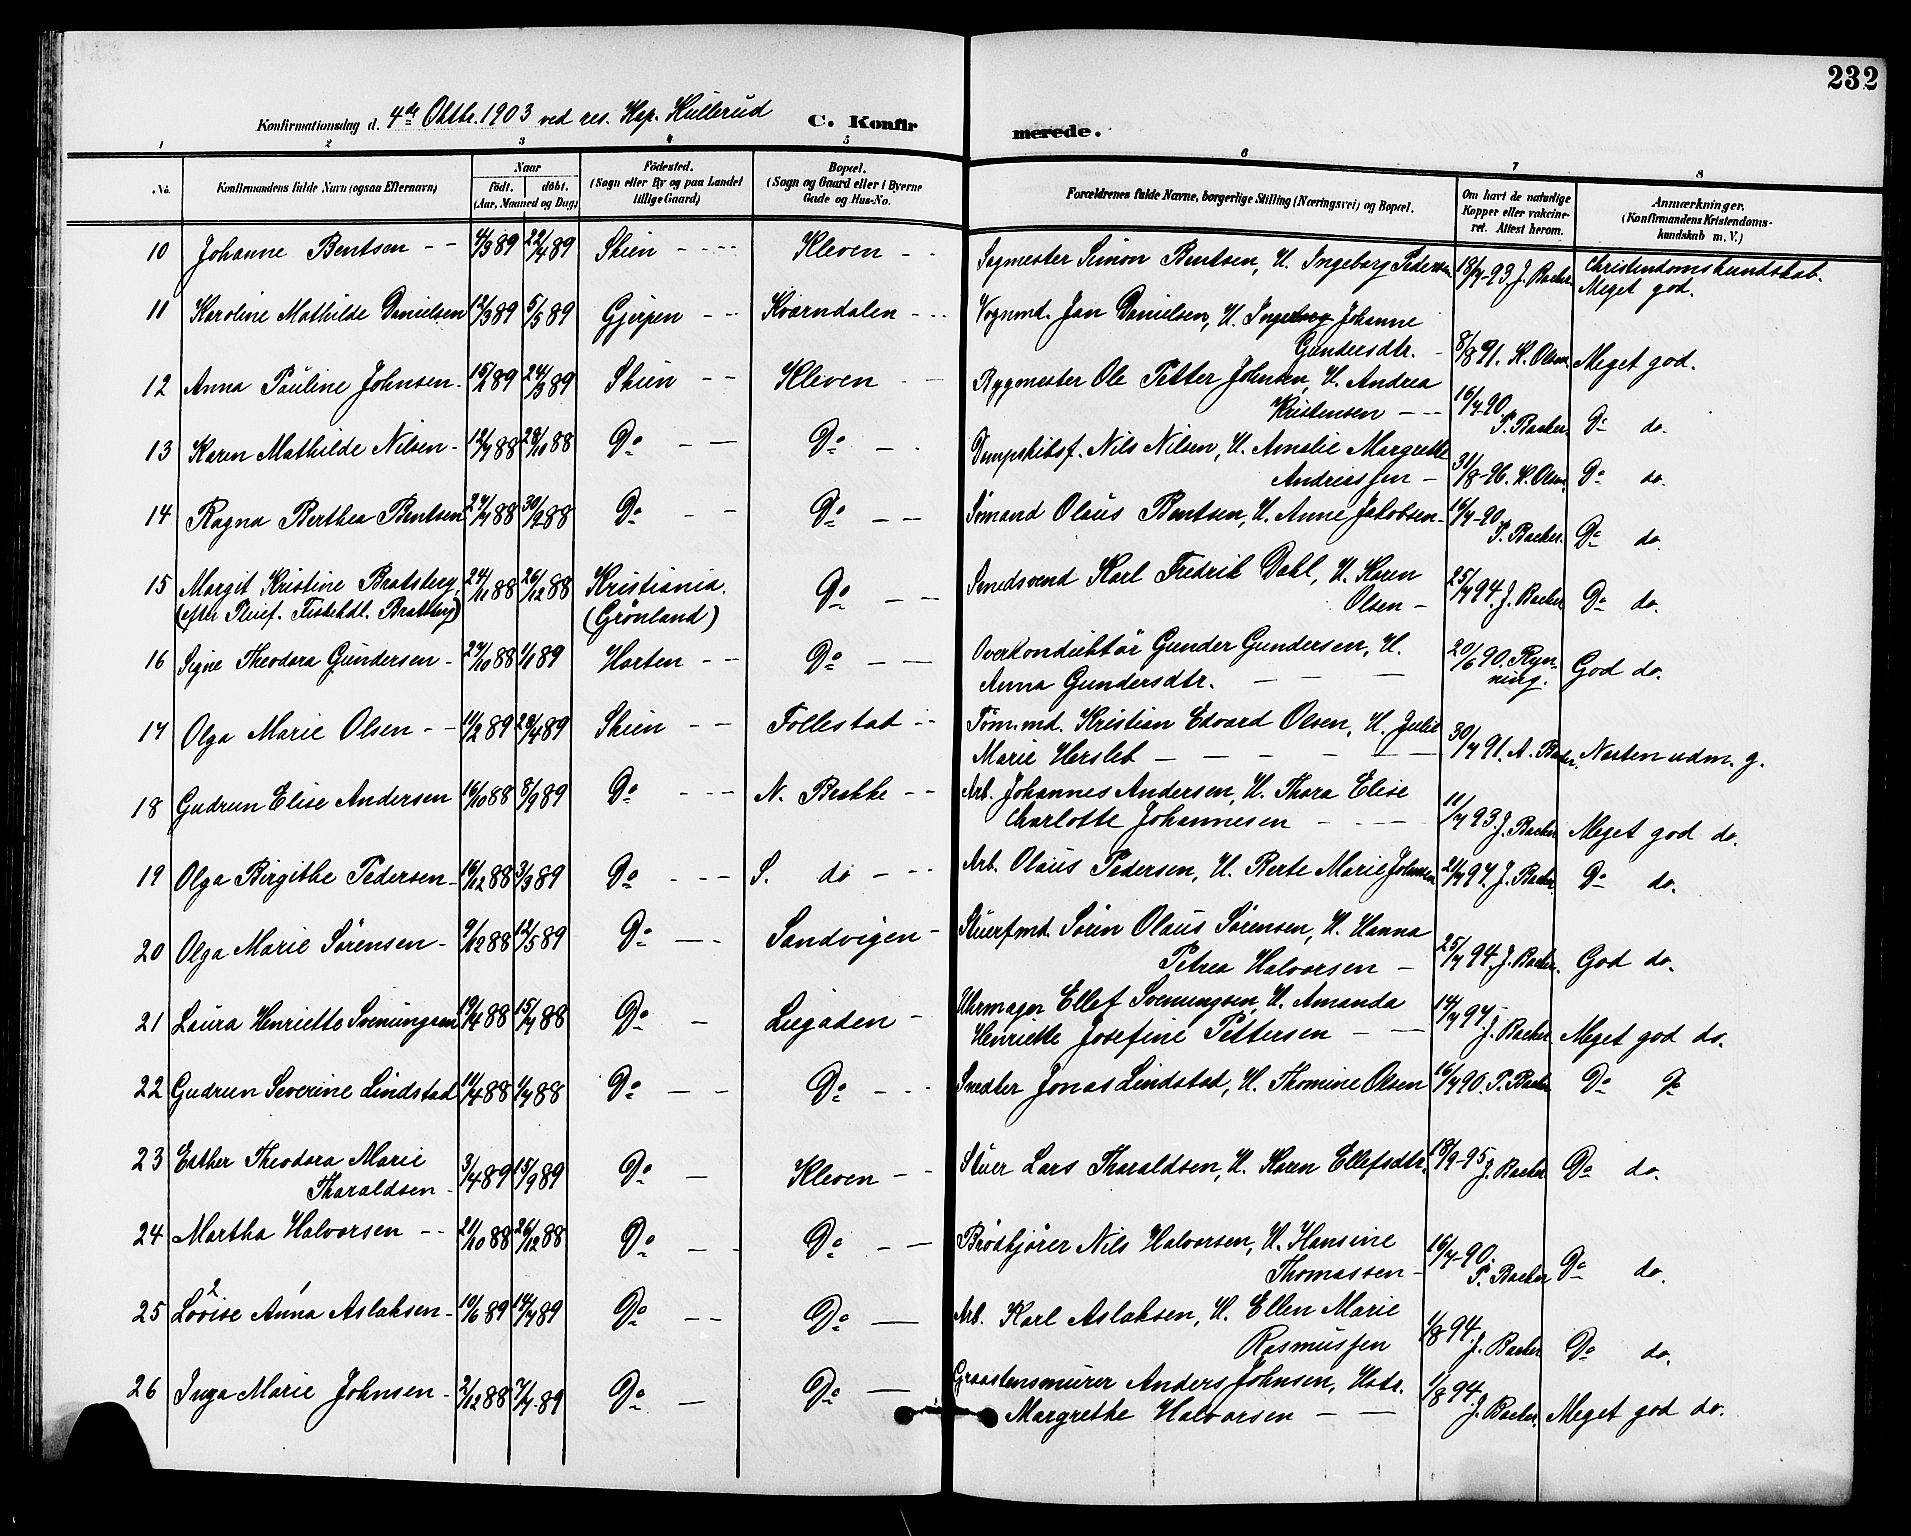 232
Konfirmationsdag d. 4de Oktbr. 1903 ved res. Kap. Hullerud C. Konfirmerede.
1 2 3 4 5 6 7 8
No. Konfirmandens fulde Navn (ogsaa Efternavn) Naar født. døbt. (Aar, Maaned og Dag) Fødested. (Sogn eller By og paa Landet tillige Gaard) Bopæl. (Sogn og Gaard eller i Byerne Gade og Hus-No. Forældrenes fulde Navne, borgerlige Stilling (Næringsvei) og Bopæl. Om havt de naturlige Kopper eller vakcineret. Attest herom. Anmærkninger. (Konfirmandens Kristendomskundskab m. V.)
10 Johanne Bentsen 4/3 89 22/4 89 Skien Kleven Sagmester Simon Bentsen, H. Ingeborg Pedersen 18/7-93 J. Backer Christendomskundskab. Meget god.
11 Karoline Mathilde Danielsen 12/3 89 5/5 89 Gjerpen Kværndalen Vognmd. Jan Danielsen, H. Ingeborg Johanne
Gundersdtr. 8/8 91. K. Olsen Meget god.
12 Anna Pauline Johnsen 15/2 89 24/3 89 Skien Kleven Rygmester Ole Petter Johnsen, H. Andrea
Kristensen 16/7-90. P. Backer. Do do.
13 Karen Mathilde Nilsen 12/7 88 28/10 88 Do Do Dampskibsf. Nils Nilsen, H. Amalie Margrethe
Andreassen 31/8-96. K. Olsen Do do.
14 Ragna Berthea Bentsen 24/7 88 30/9 88 Do Do Sømand Olaus Bentsen, H. Anne Jakobsen 16/7-90. P. Backer. Do do.
15 Margit Kristine Bratsberg, 24/11 88 26/12 88 Kristiania. Do Smedsvend Karl Fredrik Dahl, H. Karen
(efter Pleief. Fiskehdl. Bratsberg) (Grönland) Olsen 25/7 94. J. Backer Do do.
16 Signe Theodora Gundersen 27/10 88 1/1 89 Horten Do Overkonduktör Gunder Gundersen, H.
Anna Gundersdtr. 20/6 90. Rynning. God do.
17 Olga Marie Olsen 11/2 89 28/4 89 Skien Follestad Tøm.md. Kristian Edvard Olsen, H. Julie
Marie Hersleb 30/7 91. A. Backer. Næsten udm. g.
18 Gudrun Elise Andersen 16/10 88 8/9 89 Do N. Brekke Arb. Johannes Andersen, H. Thora Elise
Charlotte Johannesen 11/7 93. J. Backer Meget god do.
19 Olga Birgithe Pedersen 16/12 88 3/3 89 Do S. do Arb. Olaus Pedersen, H. Berte Marie Johnsen 21/7 97. J. Backer. Do do.
20 Olga Marie Sørensen 9/12 88 12/5 89 Do Sandvigen Stuerfmd. Sørin Olaus Sørensen, H. Hanna
Petrea Halvorsen 25/7 94. J. Backer. God do.
21 Laura Henriette Svenungsen 19/4 88 15/7 88 Do Liegaden Uhrmager Ellef Svenungsen, H. Amanda
Henriette Josefine Pettersen 14/7 97. J. Backer. Meget god do.
22 Gudrun Severine Lindstad 11/4 88 1/7 88 Do Do Smedker Jonas Lindstad, H. Thomine Olsen 16/7 90. P. Backer Do
23 Esther Theodora Marie
Tharaldsen 3/4 89 15/9 89 Do Kleven Stuer Lars Tharaldsen, H. Karen Ellefsdtr. 18/9-95 J. Backer Do do.
24 Martha Halvorsen 21/10 88 26/12 88 Do Do Brödkjører Nils Halvorsen, H. Hansine
Thomassen 16/7-90. P. Backer Do do.
25 Lovise Anna Aslaksen 10/6 89 14/7 89 Do Do Arb. Karl Aslaksen, H. Ellen Marie
Rasmussen 1/8 94. J. Backer Do do.
26 Inga Marie Johnsen 2/12 88 7/7-89 Do Do Graastensmurer Anders Johnsen, Hstr.
Margrethe Halvorsen 1/8 94. J. Backer. Meget god do.